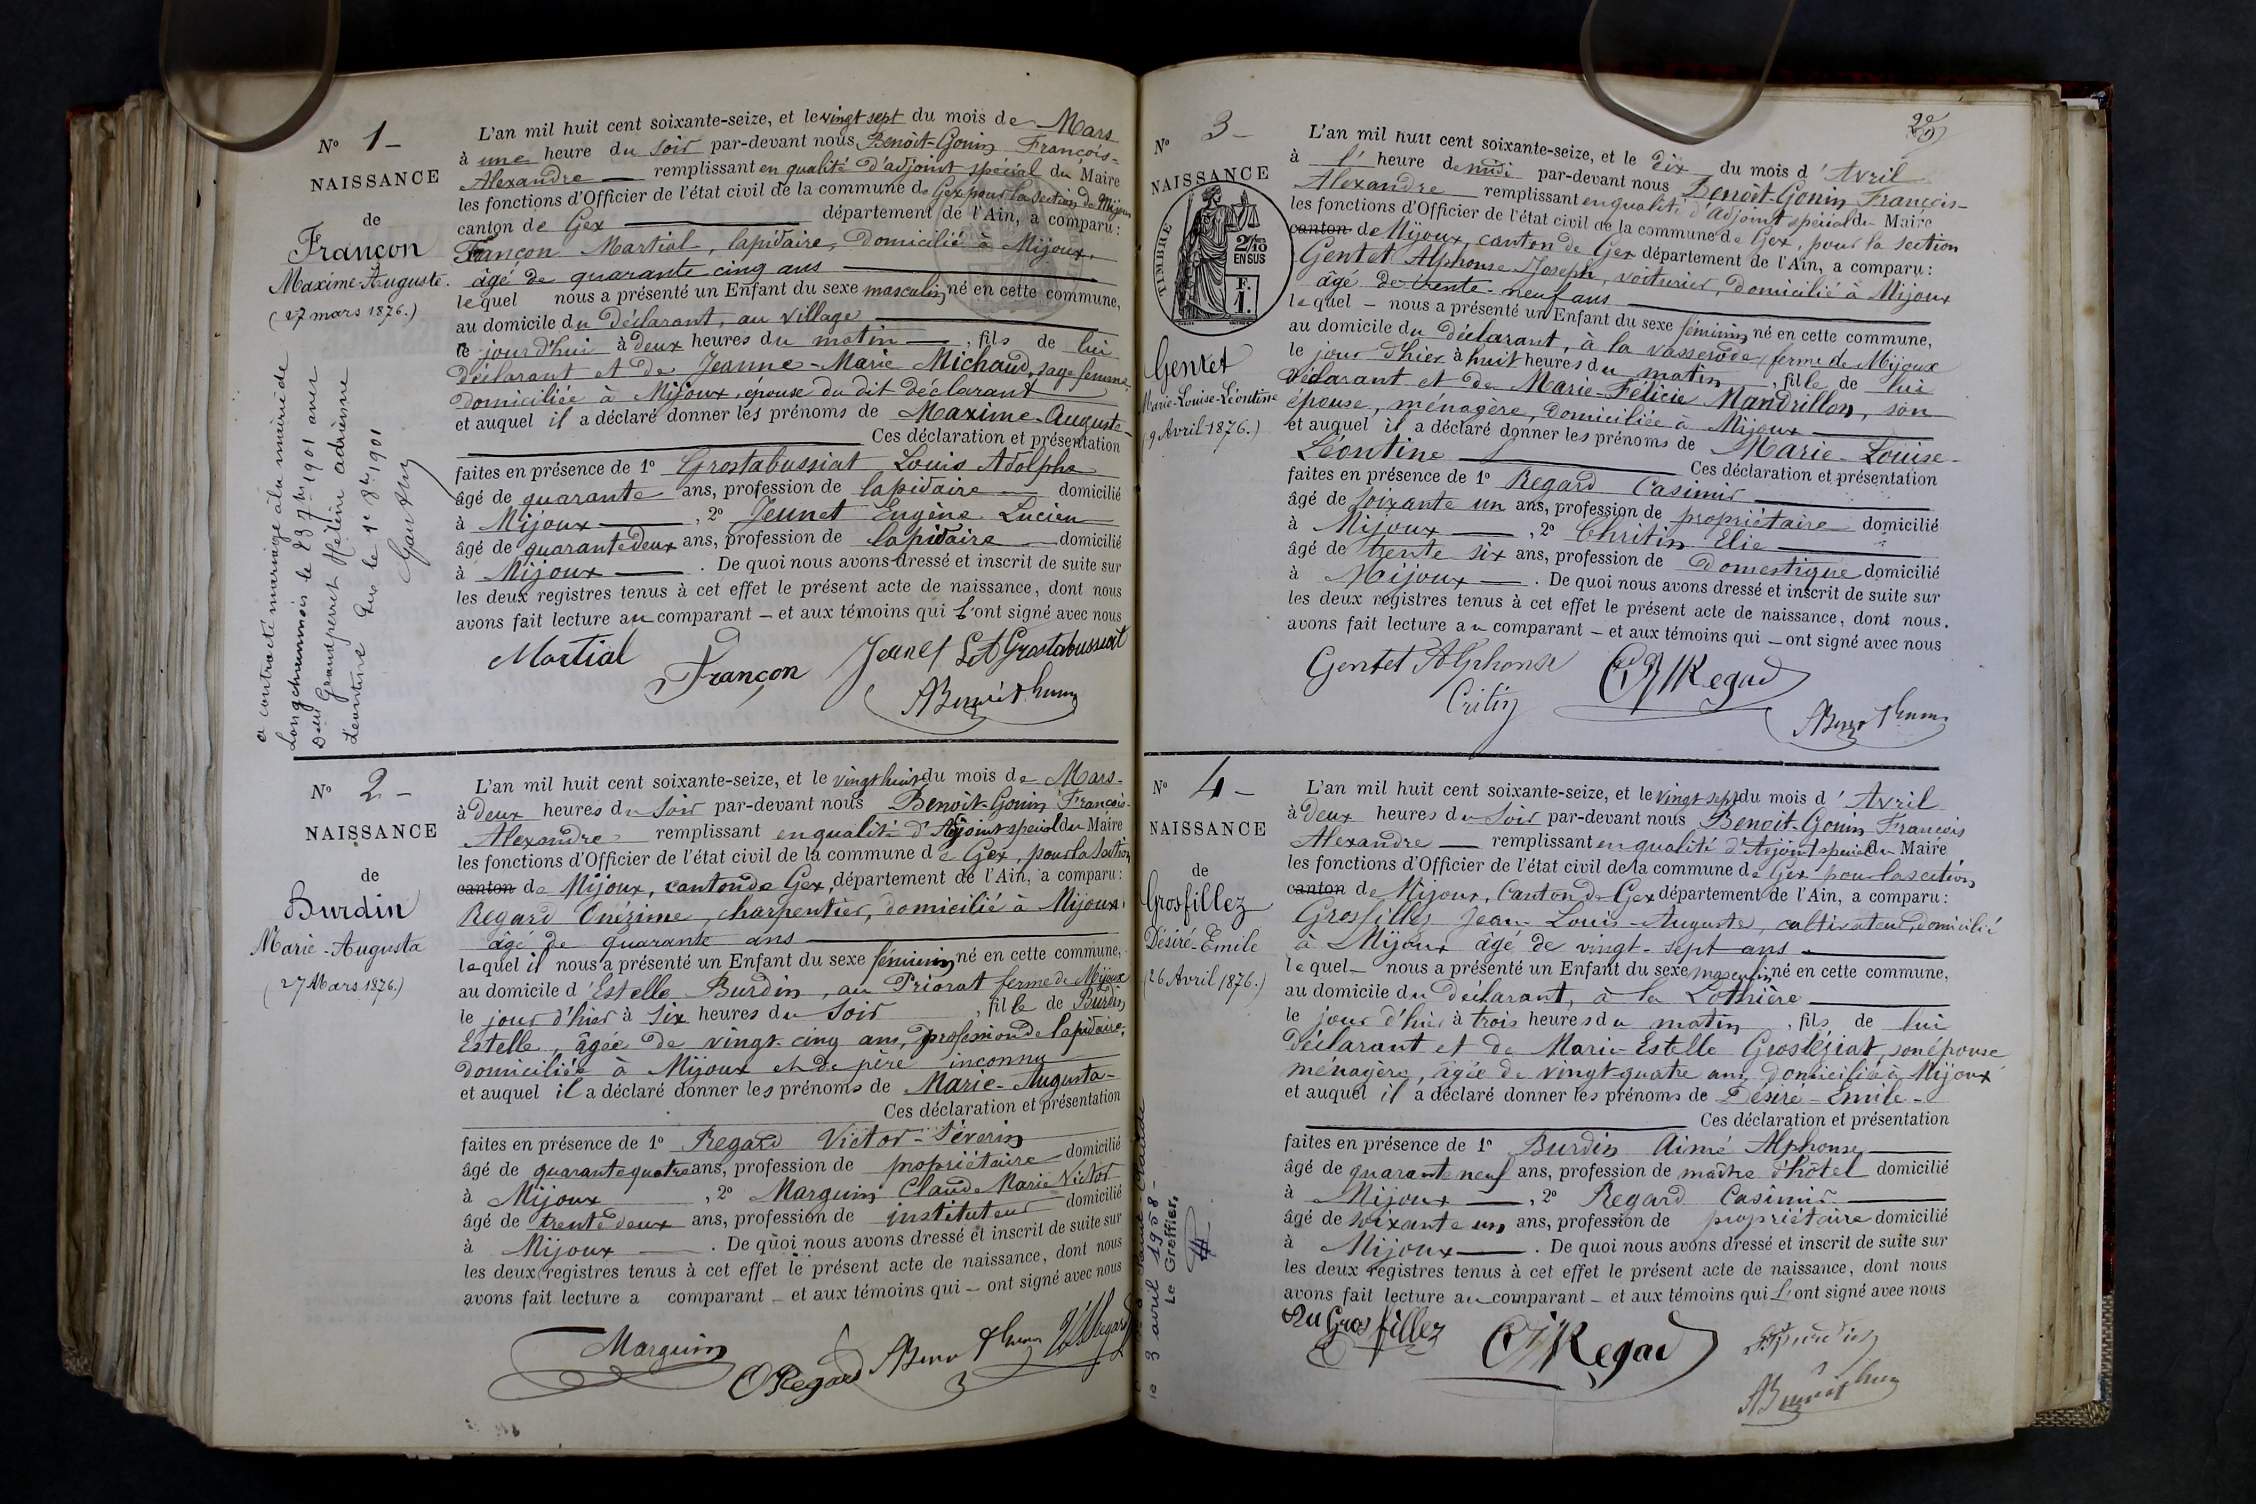 N° 1 —
NAISSANCE
de
Françon
Maxime-Auguste.
(27 mars 1876.)
a contracté mariage à la mairie de
Longchaumois le 23 7bre 1901 avec
Delle Grandperret Hélène Adrienne
Léontine Gex le 1er 8bre 1901
L'an mil huit cent soixante-seize, et le vingt sept du mois de Mars
à une heure du soir par-devant nous Benoît-Gonin François-
Alexandre — remplissant en qualité d'adjoint spécial du Maire
les fonctions d'Officier de l'état civil de la commune de Gex pour la section de Mijoux
canton de Gex — département de l'Ain, a comparu :
Françon Martial, lapidaire, domicilié à Mijoux,
âgé de quarante cinq ans —
lequel nous a présenté un Enfant du sexe masculin né en cette commune,
au domicile du Déclarant, au village —
le jour d'hui à deux heures du matin —, fils de lui
Déclarant et de Jeanne-Marie Michaud, sage femme
domiciliée à Mijoux, épouse du dit déclarant
et auquel il a déclaré donner les prénoms de Maxime-Auguste-
— Ces déclaration et présentation
faites en présence de 1° Grostabussiat Louis Adolphe
âgé de quarante ans, profession de lapidaire — domicilié
à Mijoux —, 2° Jeunet Eugène Lucien
âgé de quarante deux ans, profession de lapidaire — domicilié
à Mijoux — . De quoi nous avons dressé et inscrit de suite sur
les deux registres tenus à cet effet le présent acte de naissance, dont nous
avons fait lecture au comparant — et aux témoins qui l'ont signé avec nous
Martial Françon Jeunet LA Grostabussiat
N° 2 —
NAISSANCE
de
Burdin
Marie-Augusta
(27 Mars 1876.)
L'an mil huit cent soixante-seize, et le vingt huit du mois de Mars-
à deux heures du soir par-devant nous Benoît-Gonin François-
Alexandre — remplissant en qualité d'Adjoint spécial du Maire
les fonctions d'Officier de l'état civil de la commune de Gex, pour la section
canton de Mijoux, canton de Gex, département de l'Ain, a comparu :
Regard Onézime, charpentier, domicilié à Mijoux,
âgé de quarante ans —
lequel il nous a présenté un Enfant du sexe féminin né en cette commune,
au domicile d'Estelle Burdin, au Priorat ferme de Mijoux
le jour d'hier à six heures du soir, fille de Burdin
Estelle, âgée de vingt-cinq ans, profession de lapidaire,
domiciliée à Mijoux et de père inconnu
et auquel il a déclaré donner les prénoms de Marie-Augusta-
Ces déclaration et présentation
faites en présence de 1° Regard Victor-Séverin
âgé de quarante quatre ans, profession de propriétaire domicilié
à Mijoux, 2° Marguin Claude Marie Victor
âgé de trente deux ans, profession de instituteur domicilié
à Mijoux — . De quoi nous avons dressé et inscrit de suite sur
les deux registres tenus à cet effet le présent acte de naissance, dont nous
avons fait lecture a comparant — et aux témoins qui — ont signé avec nous
Marguin O Regard
22
N° 3 —
NAISSANCE
TIMBRE
2/10
EN SUS
F.
1.
Gentet
Marie-Louise-Léontine
(9 Avril 1876.)
L'an mil huit cent soixante-seize, et le dix du mois d'Avril
à l'heure de midi par-devant nous Benoît-Gonin François-
Alexandre — remplissant en qualité d'Adjoint spécial du Maire
les fonctions d'Officier de l'état civil de la commune de Gex, pour la section
canton de Mijoux, canton de Gex département de l'Ain, a comparu :
Gentet Alphonse Joseph, voiturier, domicilié à Mijoux
âgé de trente-neuf ans —
lequel — nous a présenté un Enfant du sexe féminin né en cette commune,
au domicile du déclarant, à la vasserode, ferme de Mijoux
le jour d'hier à huit heures du matin, fille de lui
Déclarant et de Marie-Félicie Mandrillon, son
épouse, ménagère, domiciliée à Mijoux —
et auquel il a déclaré donner les prénoms de Marie-Louise-
Léontine — Ces déclaration et présentation
faites en présence de 1° Regard Casimir —
âgé de soixante un ans, profession de propriétaire domicilié
à Mijoux —, 2° Christin Elie —
âgé de trente six ans, profession de Domestique domicilié
à Mijoux — . De quoi nous avons dressé et inscrit de suite sur
les deux registres tenus à cet effet le présent acte de naissance, dont nous.
avons fait lecture au comparant — et aux témoins qui — ont signé avec nous
Gentet Alphonse Regad
N° 4 —
NAISSANCE
de
Grosfillez
Désiré-Emile
(26 Avril 1876.)
le 3 avril 1958 -
Le Greffier,
L'an mil huit cent soixante-seize, et le vingt sept du mois d'Avril
à deux heures du soir par-devant nous Benoit-Gonin François
Alexandre — remplissant en qualité d'Adjoint spécial du Maire
les fonctions d'Officier de l'état civil de la commune de Gex pour la section
canton de Mijoux, Canton de Gex département de l'Ain, a comparu :
Grosfillez Jean-Louis-Auguste, cultivateur, domicilié
à Mijoux âgé de vingt-sept ans —
lequel — nous a présenté un Enfant du sexe masculin né en cette commune,
au domicile du déclarant, à la Lothière —
le jour d'hier à trois heures du matin, fils de lui
Déclarant et de Marie-Estelle Gros , son épouse
ménagère, âgée de vingt-quatre ans, domiciliée à Mijoux
et auquel il a déclaré donner les prénoms de Désiré-Emile-
— Ces déclaration et présentation
faites en présence de 1° Burdin Aimé Alphonse
âgé de quarante neuf ans, profession de maître d'hôtel domicilié
à Mijoux —, 2° Regard Casimir —
âgé de soixante un ans, profession de propriétaire domicilié
à Mijoux — . De quoi nous avons dressé et inscrit de suite sur
les deux registres tenus à cet effet le présent acte de naissance, dont nous
avons fait lecture au comparant — et aux témoins qui l'ont signé avec nous
Grosfillez Regad